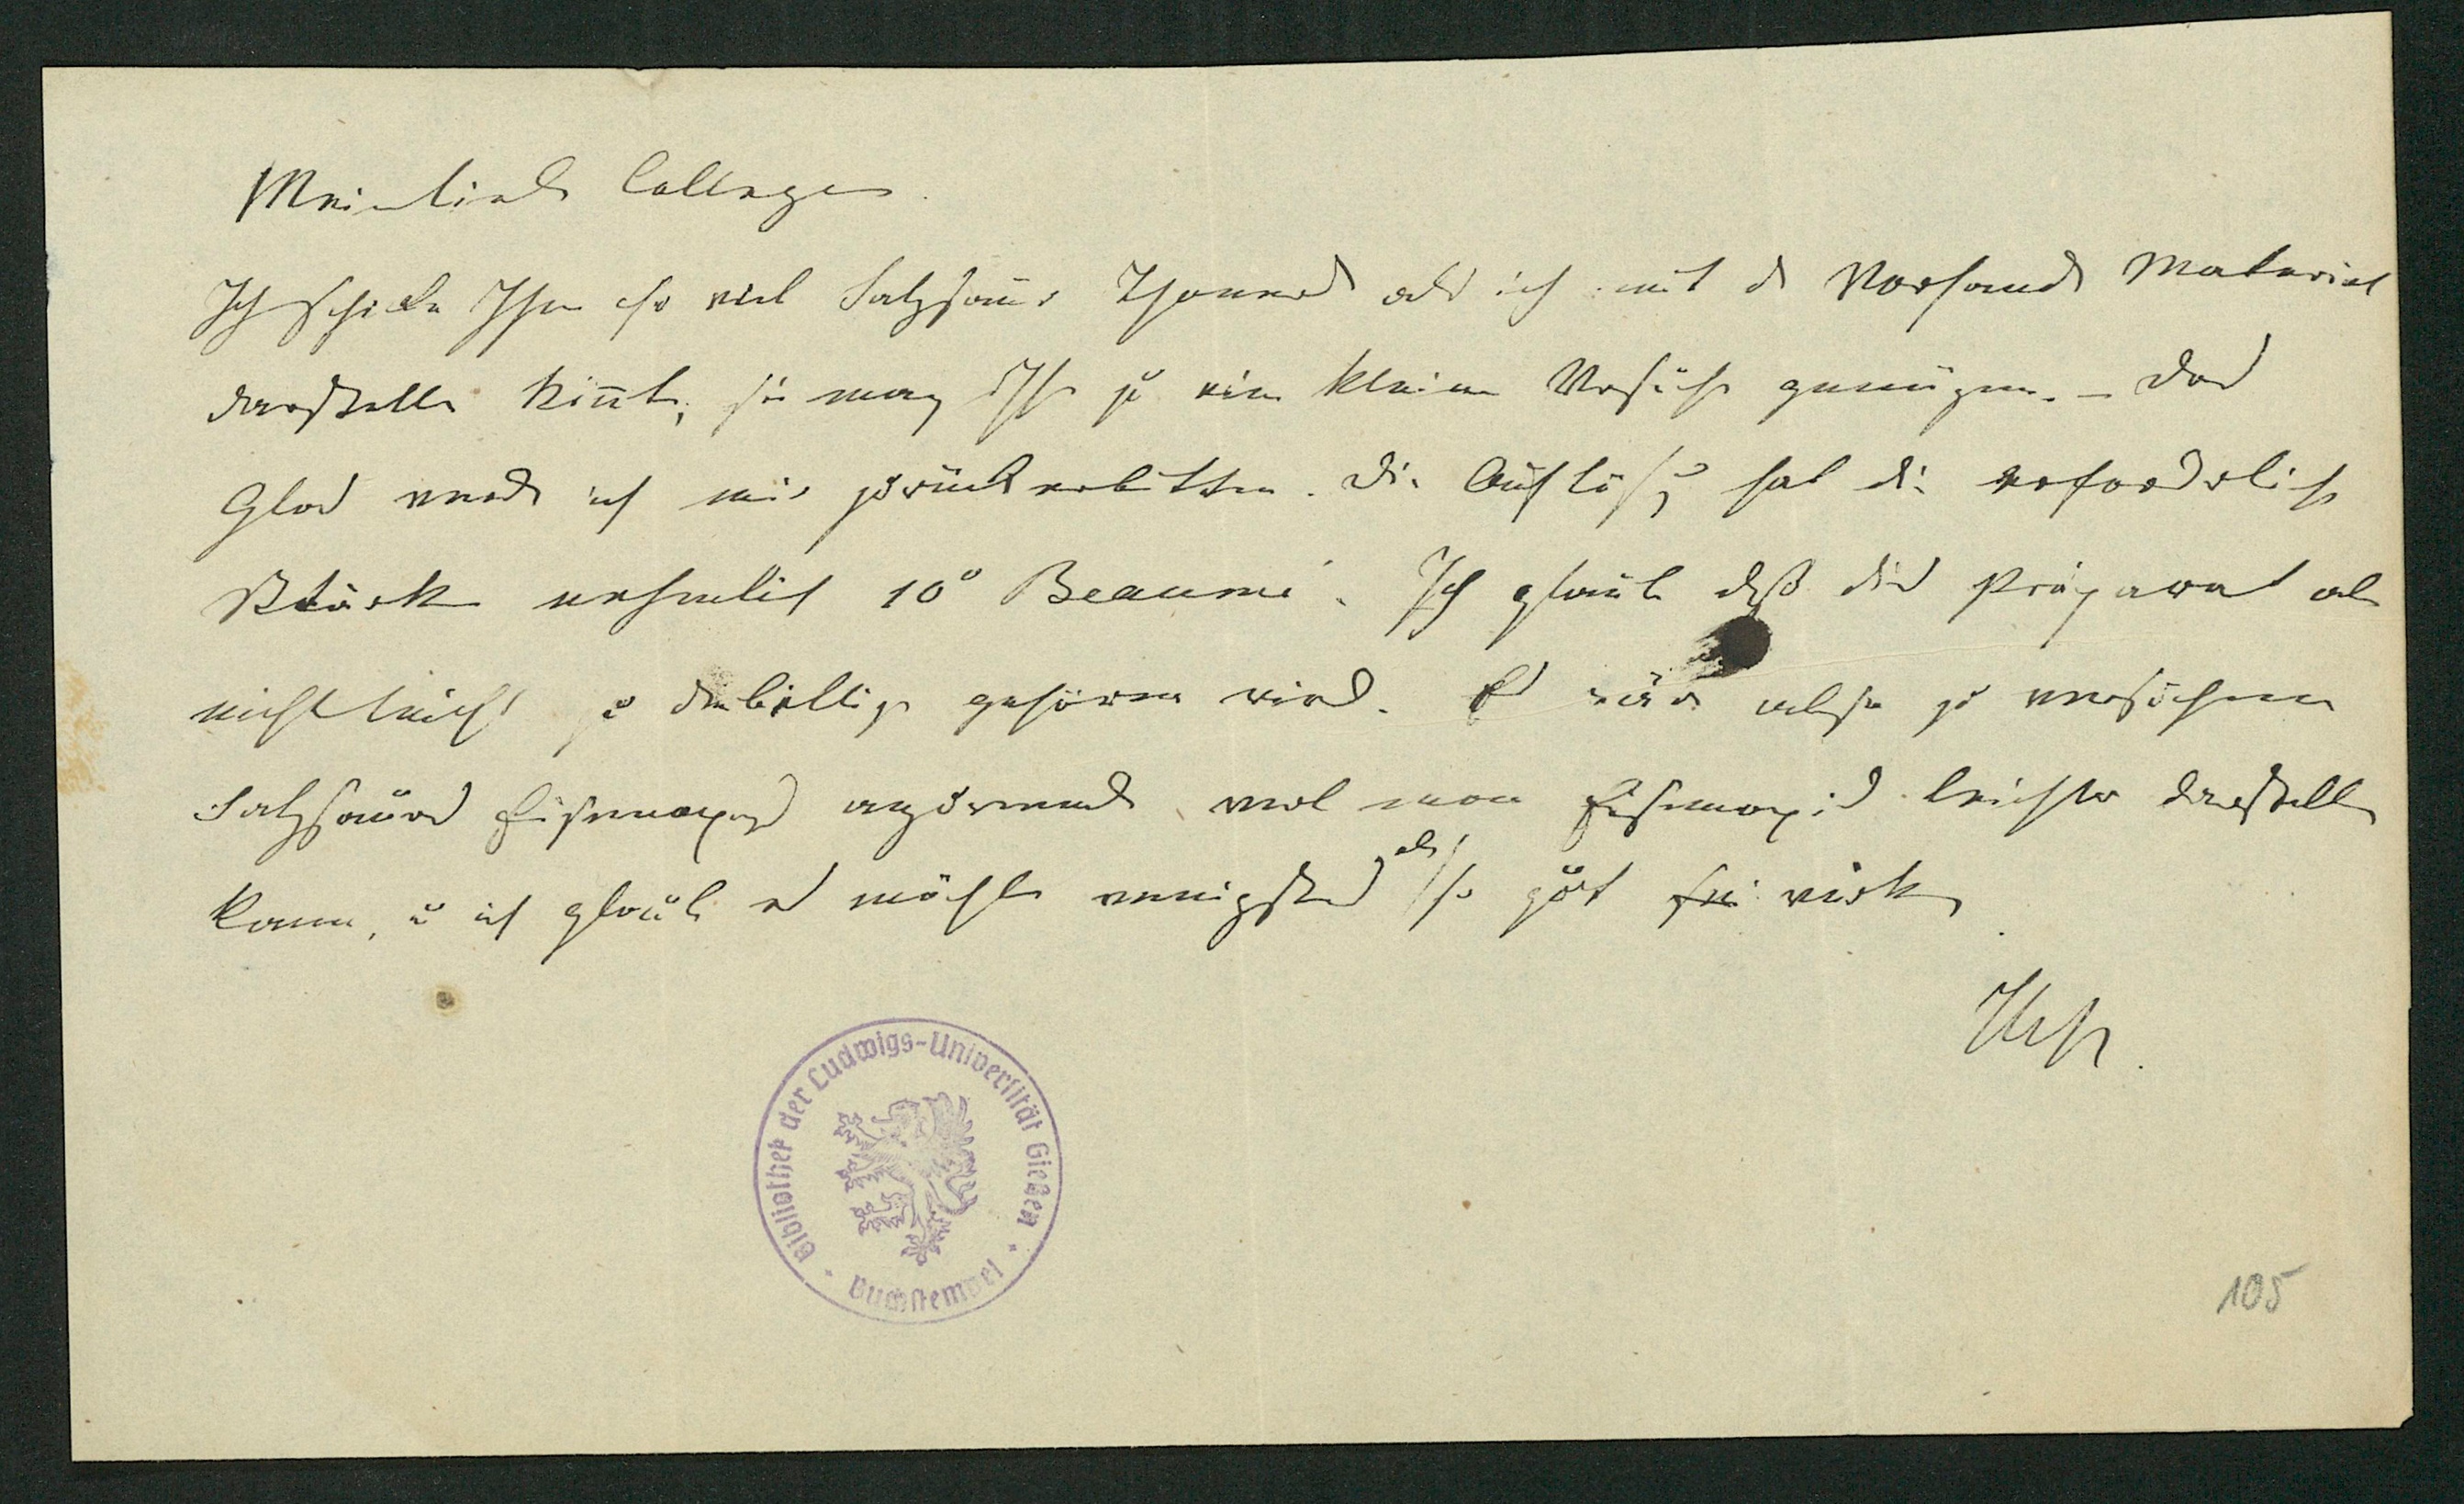 Mein lieber College.
Ich schicke Ihnen so viel Salzsaure Thonerde als ich mit d Vorhand Material
darstellen konnte, sie mag Ihn zu ein kleinen Versuche genügen. - Das
Glas werde ich mir zurückerbitten. Die Auflösg hat die erforderliche
Stärke nehmlich 10° Beaumé. Ich glaube daß dies Präparat
nicht leicht zu den billigen gehören wird. Es wäre also zu versuchen
Salzsaures Eisenoxyd anzuwenden weil man Eisenoxid leichter darstellen
kann, u ich glaube es möchte wenigstens eb so gut wirken
Bibliothek der Ludwigs-Universität Gießen
Buchstempel
105